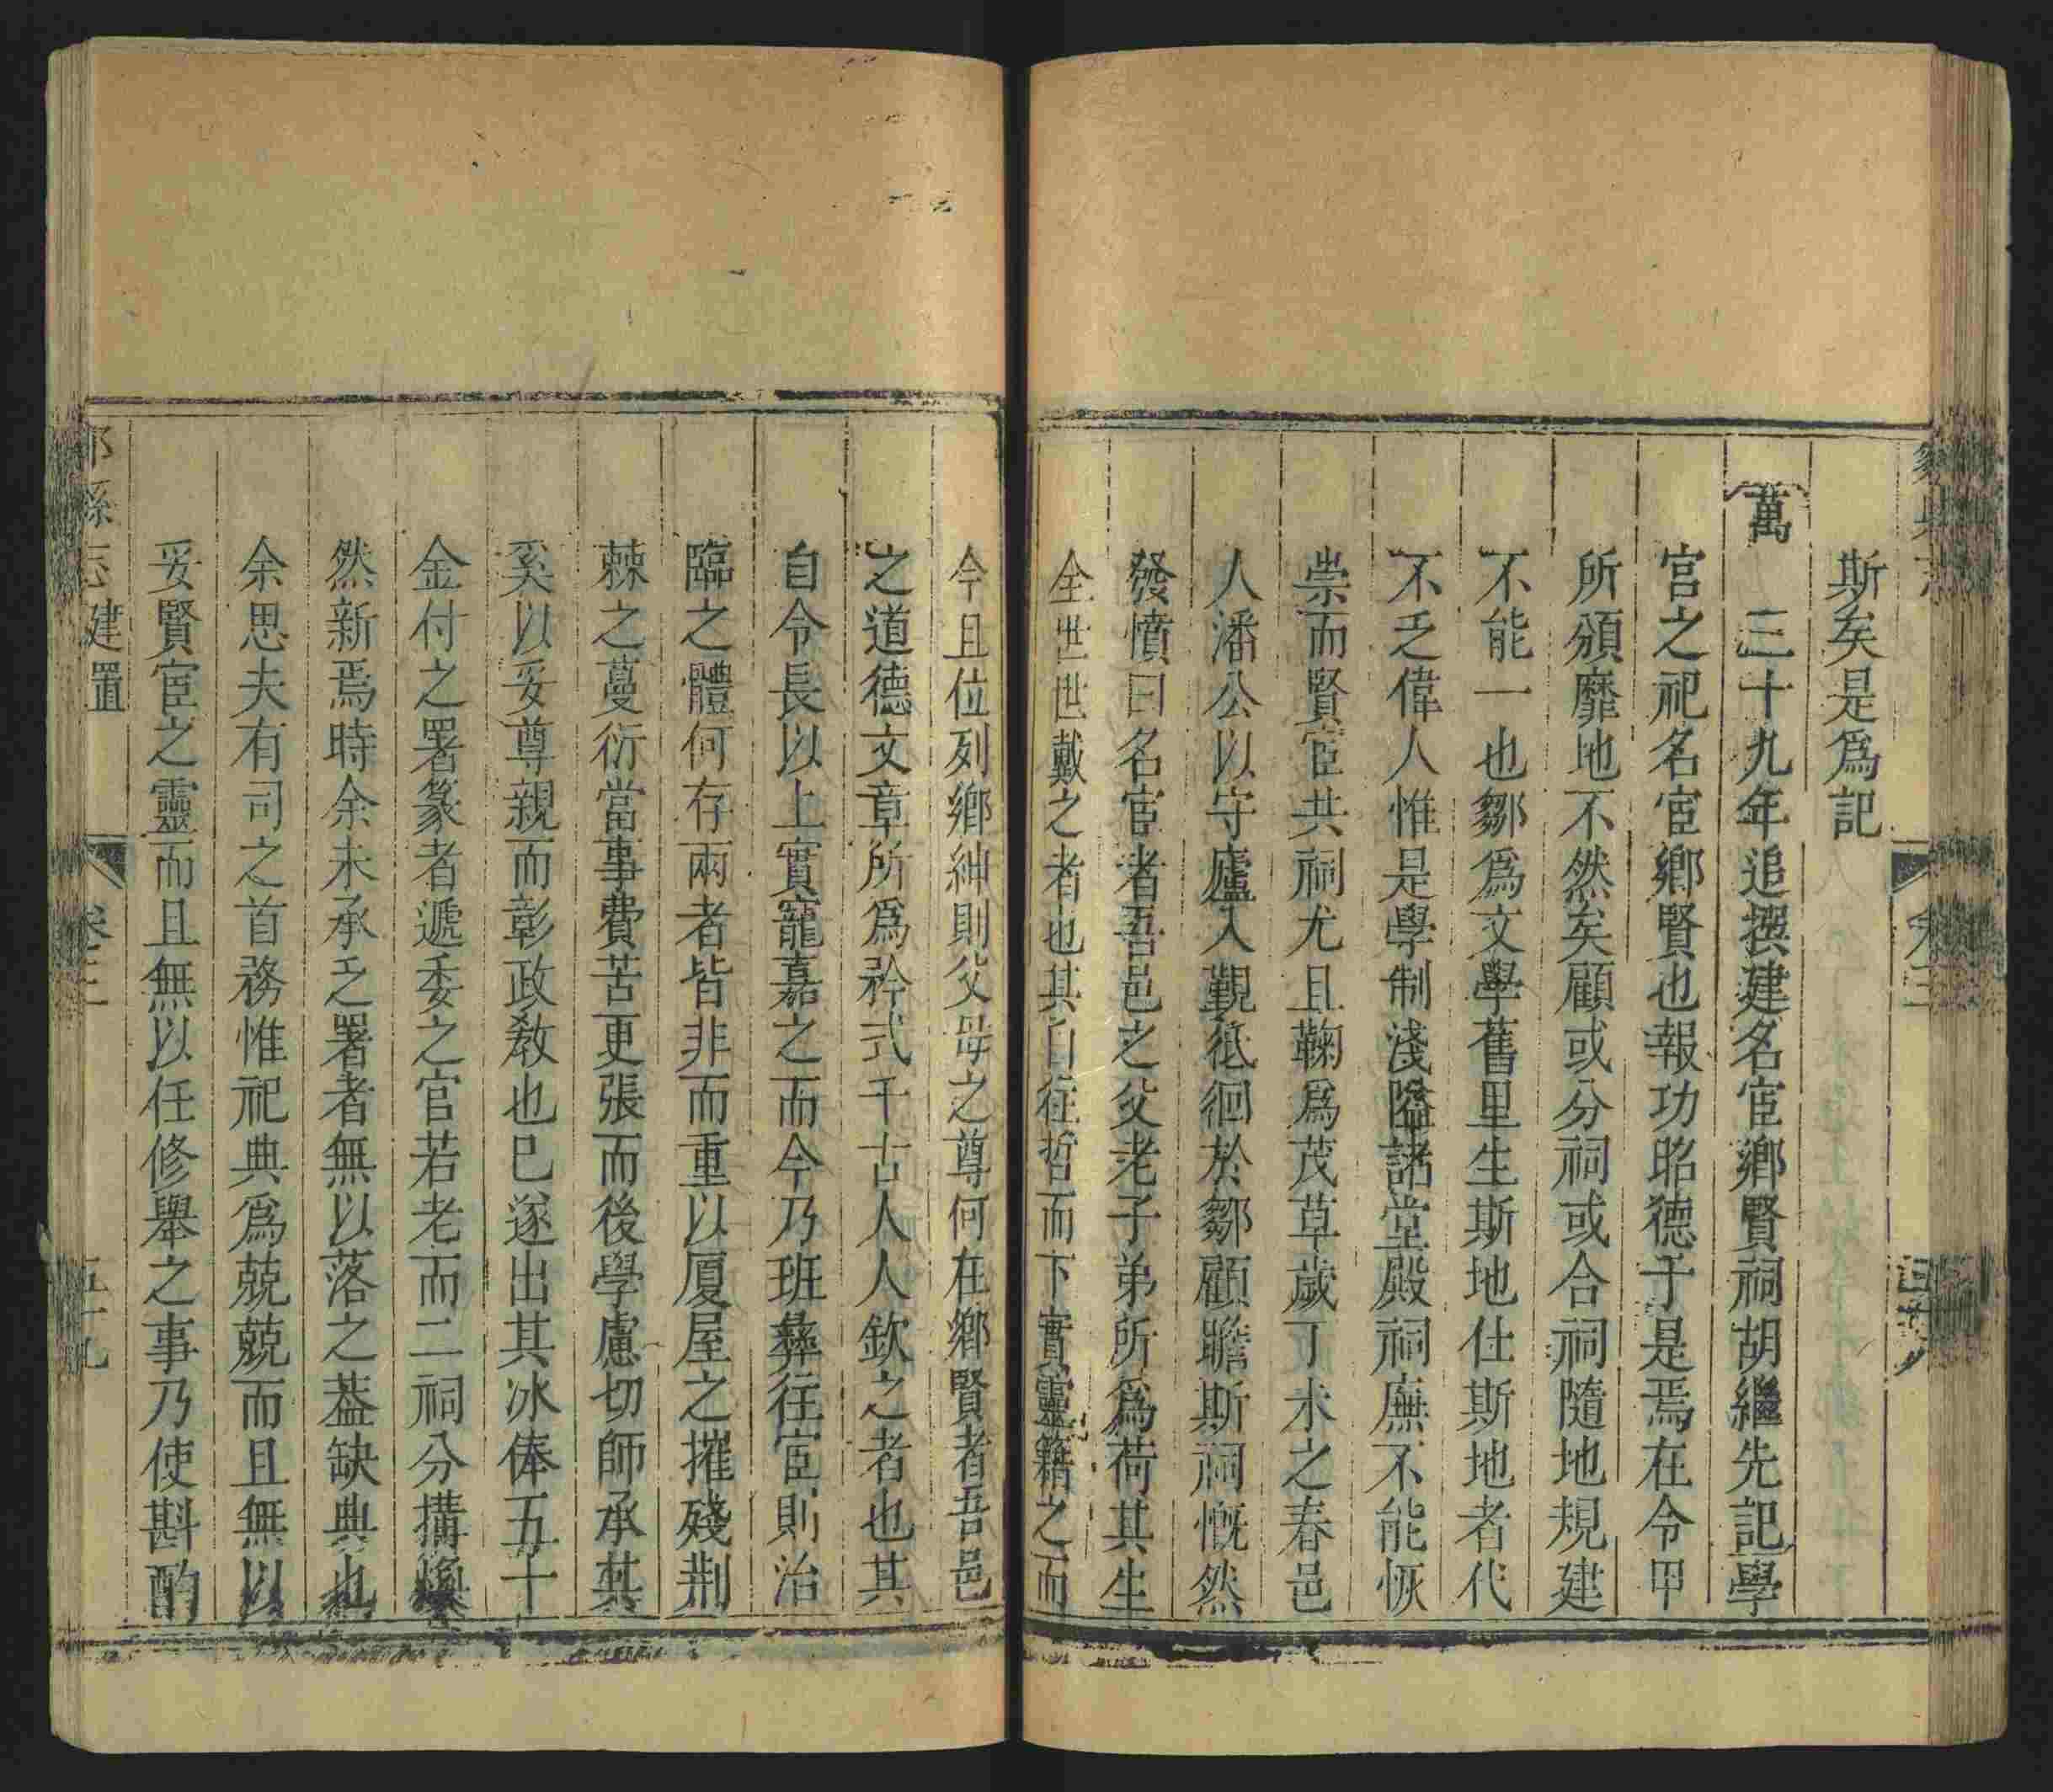 斯矣是爲記
萬 三十九年追撰建名宦鄉賢祠胡繼先記學
宮之祀名宦鄉賢也報功昭德于是焉在令甲
所頒靡地不然矣顧或分祠或合祠隨地規建
不能一也鄒爲文學舊里生斯地仕斯地者代
不乏偉人惟是學制淺隘諸堂殿祠廡不能恢
崇而賢宦共祠尤且鞠爲茂草歲丁未之春邑
人潘公以守廬入覲徘徊於鄒顧瞻斯祠慨然
發憤曰名宦者吾邑之父老子弟所爲荷其生
全世世戴之者也其自往哲而下實靈籍之而
今且位列鄉紳則父母之尊何在鄉賢者吾邑
之道德文章所爲矜式千古人人欽之者也其
自令長以上實寵嘉之而今乃班彝往宦則治
臨之體何存兩者皆非而重以厦屋之摧殘荆
棘之蔓衍當事費苦更張而後學慮切師承其
奚以妥尊親而彰政教也巳遂出其冰俸五十
金付之署篆者遞委之官若老而二祠分搆煥
然新焉時余未承乏署者無以落之葢缺典也
余思夫有司之首務惟祀典爲兢兢而且無以
妥賢宦之靈而且無以任修舉之事乃使斟酌
縣志建置 卷三 五十九